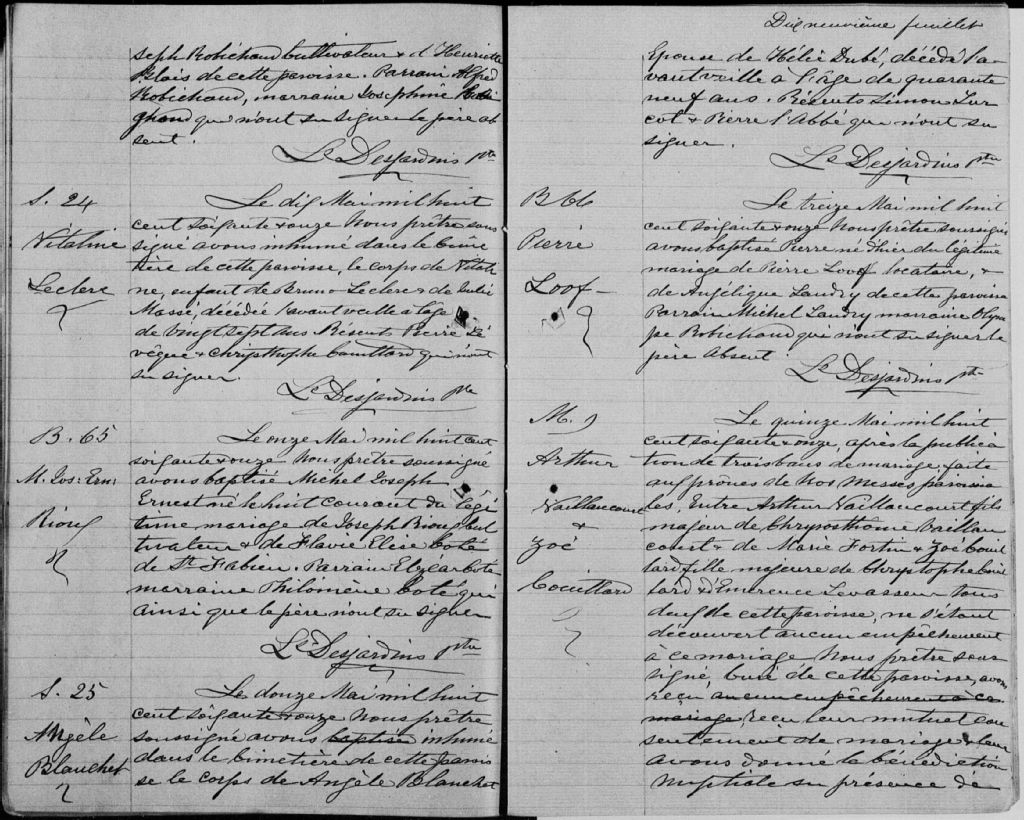 seph Robichaud Cultivateur & d'Henriette
Blais de cette paroisse. Parrain Alfred
Robichaud, marraine Josephine Robi
chaud qui n'ont su signer le père ab
sent.
Ls Desjardins ptre
S. 24
Vitaline
Leclerc
Le dix Mai mil huit
cent soixante & onze Nous prêtre sous
signé avons inhumé dans le Cime
tière de cette paroisse, le corps de Vitali
ne, enfant de Bruno Leclerc & de Julie
Massé, décédée l'avant veille à l'age
de vingt sept ans Présents Pierre Lé
vêque & Chrysthophe Couillard qui n'ont
su signer.
Ls Desjardins ptre
B. 65
M. Jos: Ern:
Rioux
Le onze Mai mil huit cent
soixante & onze Nous prêtre soussigné
avons baptisé Michel Joseph
Ernest né le huit courant du légi
time mariage de Joseph Rioux Cul
tivateur & de Flavie Elise Coté
de St Fabien. Parrain Elzear Coté
marraine Philomène Coté qui
ainsi que le père n'ont su signer
Ls Desjardins ptre
S. 25
Angèle
Blanchet
Le douze Mai mil huit
cent soixante & onze Nous prêtre
soussigné avons baptisé inhumé
dans le Cimetière de cette parois
se le corps de Angèle Blanchet
Dix neuvième feuillet
Epouse de Hélie Dubé, décédé l'a
vant veille à l'âge de quarante
neuf ans. Présents Simon Tur
cot & Pierre l'Abbé qui n'ont su
signer.
Ls Desjardins ptre
B 66
Pierre
Loof
Le treize Mai mil huit
cent soixante & onze Nous prêtre soussigné
avons baptisé Pierre né d'hier du légitime
mariage de Pierre Loof locataire, &
de Angélique Landry de cette paroisse
Parrain Michel Landry marraine Olym
pe Robichaud qui n'ont su signer le
père Absent.
Ls Desjardins ptr
M. 9
Arthur
Vaillancourt
&
Zoé
Couillard
Le quinze Mai mil huit
cent soixante & onze, après la publica
tion de trois bans de mariage, faite
aux prônes de Nos Messes paroissia
les, Entre Arthur Vaillancourt fils
majeur de Chrysosthôme Vaillan
court & de Marie Fortin & Zoé Couil
lard fille majeure de Chrystophe Couil
lard & d'Emerence Levasseur tous
deux de cette paroisse, ne s'étant
découvert aucun empêchement
à ce mariage Nous prêtre sous
signé, Curé de cette paroisse, avons
reçu aucun empêchement à ce
mariage reçu leur mutuel con
sentement de mariage & leur
avons donné la bénédiction
nuptiale en présence de